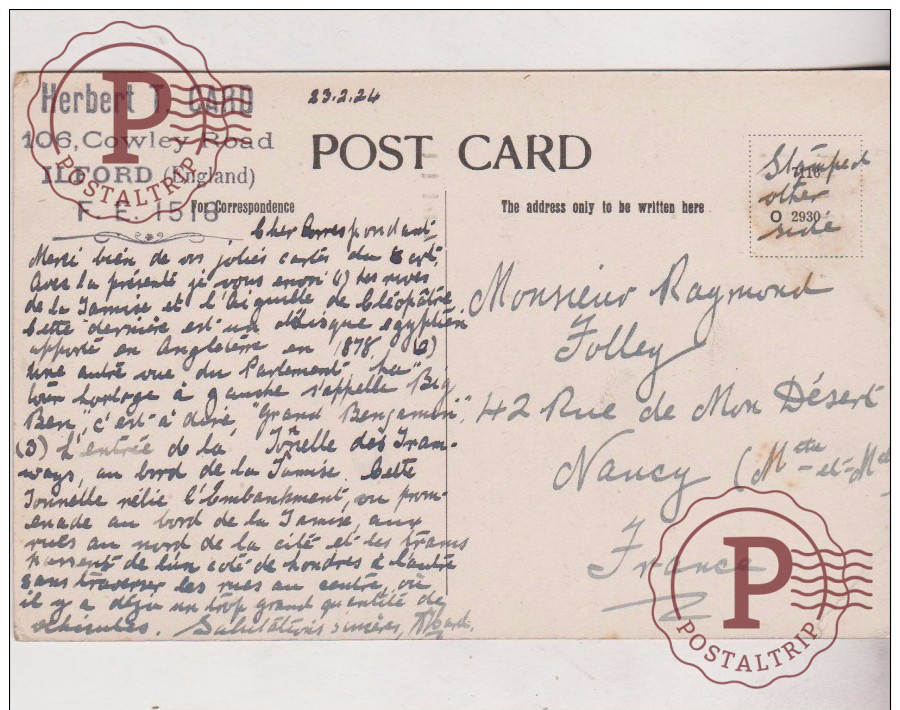 Herbert T. CARD
106, Cowley Road
ILFORD (England)
F. E. 1518
23.2.24
POST CARD
For Correspondence
The address only to be written here
Stamped
7116
other
O 2930
side
Cher Correspondant
Merci bien de vos jolies cartes du
Avec la présente je vous envoi (1) les rives
de la Tamise et l'Aiguille de Cléopâtre
Cette dernière est un obelisque egyptien
apporté en Angleterre en 1878. (2)
Une autre vue du Parlement. La
tour horloge à gauche s'appelle "Big
Ben", c'est à dire "Grand Benjamin".
(3) L'entrée de la Tonnelle des Tram-
ways, au bord de la Tamise. Cette
Tonnelle relie l'Embankment, ou prom-
enade au bord de la Tamise, aux
rues au nord de la cité et les trams
passent de l'un coté de Londres à l'autre
sans traverser les rues au centre, où
il y a déja un trop grand quantité de
véhicules. Salutations sincères,
Monsieur Raymond
Folley
42 Rue de Mon Désert
Nancy (Mthe-et-M
France
P
POSTALTRIP
P
POSTALTRIP